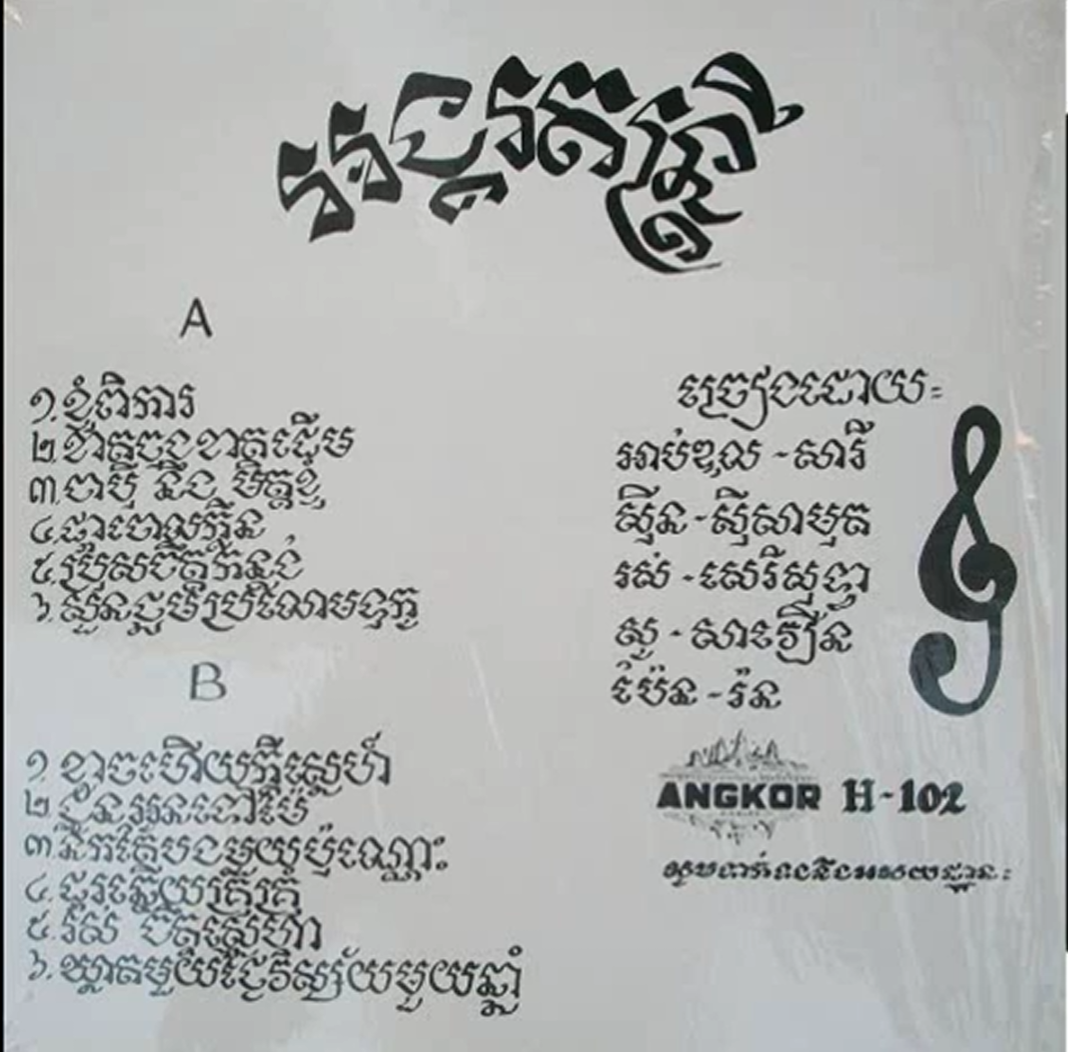 តន្ត្រី
A
១.ខ្ញុំពិការ
២.ខាតចុងខាតដើម
៣.ចាប៉ី និង មិត្តខ្ញុំ
៤.ផ្កាចោលក្លិន
៥.ប្រុសចិត្ត
៦.ប្រលោមទុក្ខ
B
១.ខ្លាចហើយក្ដីស្នេហ៍
២.ជូនអូនទៅ
៣.នឹកតែបងមួយប៉ុណ្ណោះ
៤.ដូរ
៥.ចិត្តស្នេហា
៦.ឃ្លាតមួយថ្ងៃវិស្ស័យមួយឆ្នាំ
ច្រៀងដោយ:
អាប់ឌុល - សារី
ស៊ីន - ស៊ីសាមុត
រស់ - សេរីសុទ្ធា
សូ - សាវឿន
ប៉ែន - រ៉ន
ANGKOR H-102
សូមទាក់ទងនឹងអាសយដ្ឋាន: